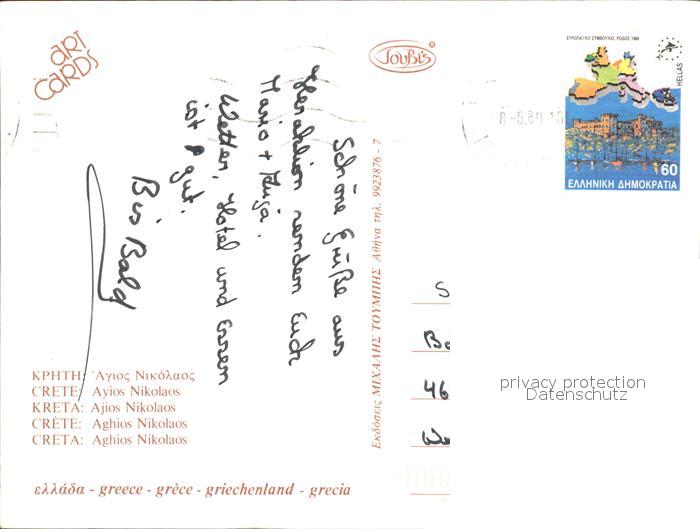 ART
CARDS
Toubi's
ΕΥΡΩΠΑΪΚΟ ΣΥΜΒΟΥΛΙΟ, ΡΟΔΟΣ 1988
HELLAS
60
ΕΛΛΗΝΙΚΗ ΔΗΜΟΚΡΑΤΙΑ
8-5.89
Schöne Grüße aus
Heraklion senden Euch
Mario +
Wetter, Hotel und Essen
ist gut.
Bis Bald
Εκδόσεις ΜΙΧΑΛΗΣ ΤΟΥΜΠΗΣ Αθήνα τηλ. 9923876 - 7
S
46
privacy protection
Datenschutz
ΚΡΗΤΗ: Άγιος Νικόλαος
CRETE: Ayios Nikolaos
KRETA: Ajios Nikolaos
CRÈTE: Aghios Nikolaos
CRETA: Aghios Nikolaos
ελλάδα - greece - grèce - griechenland - grecia